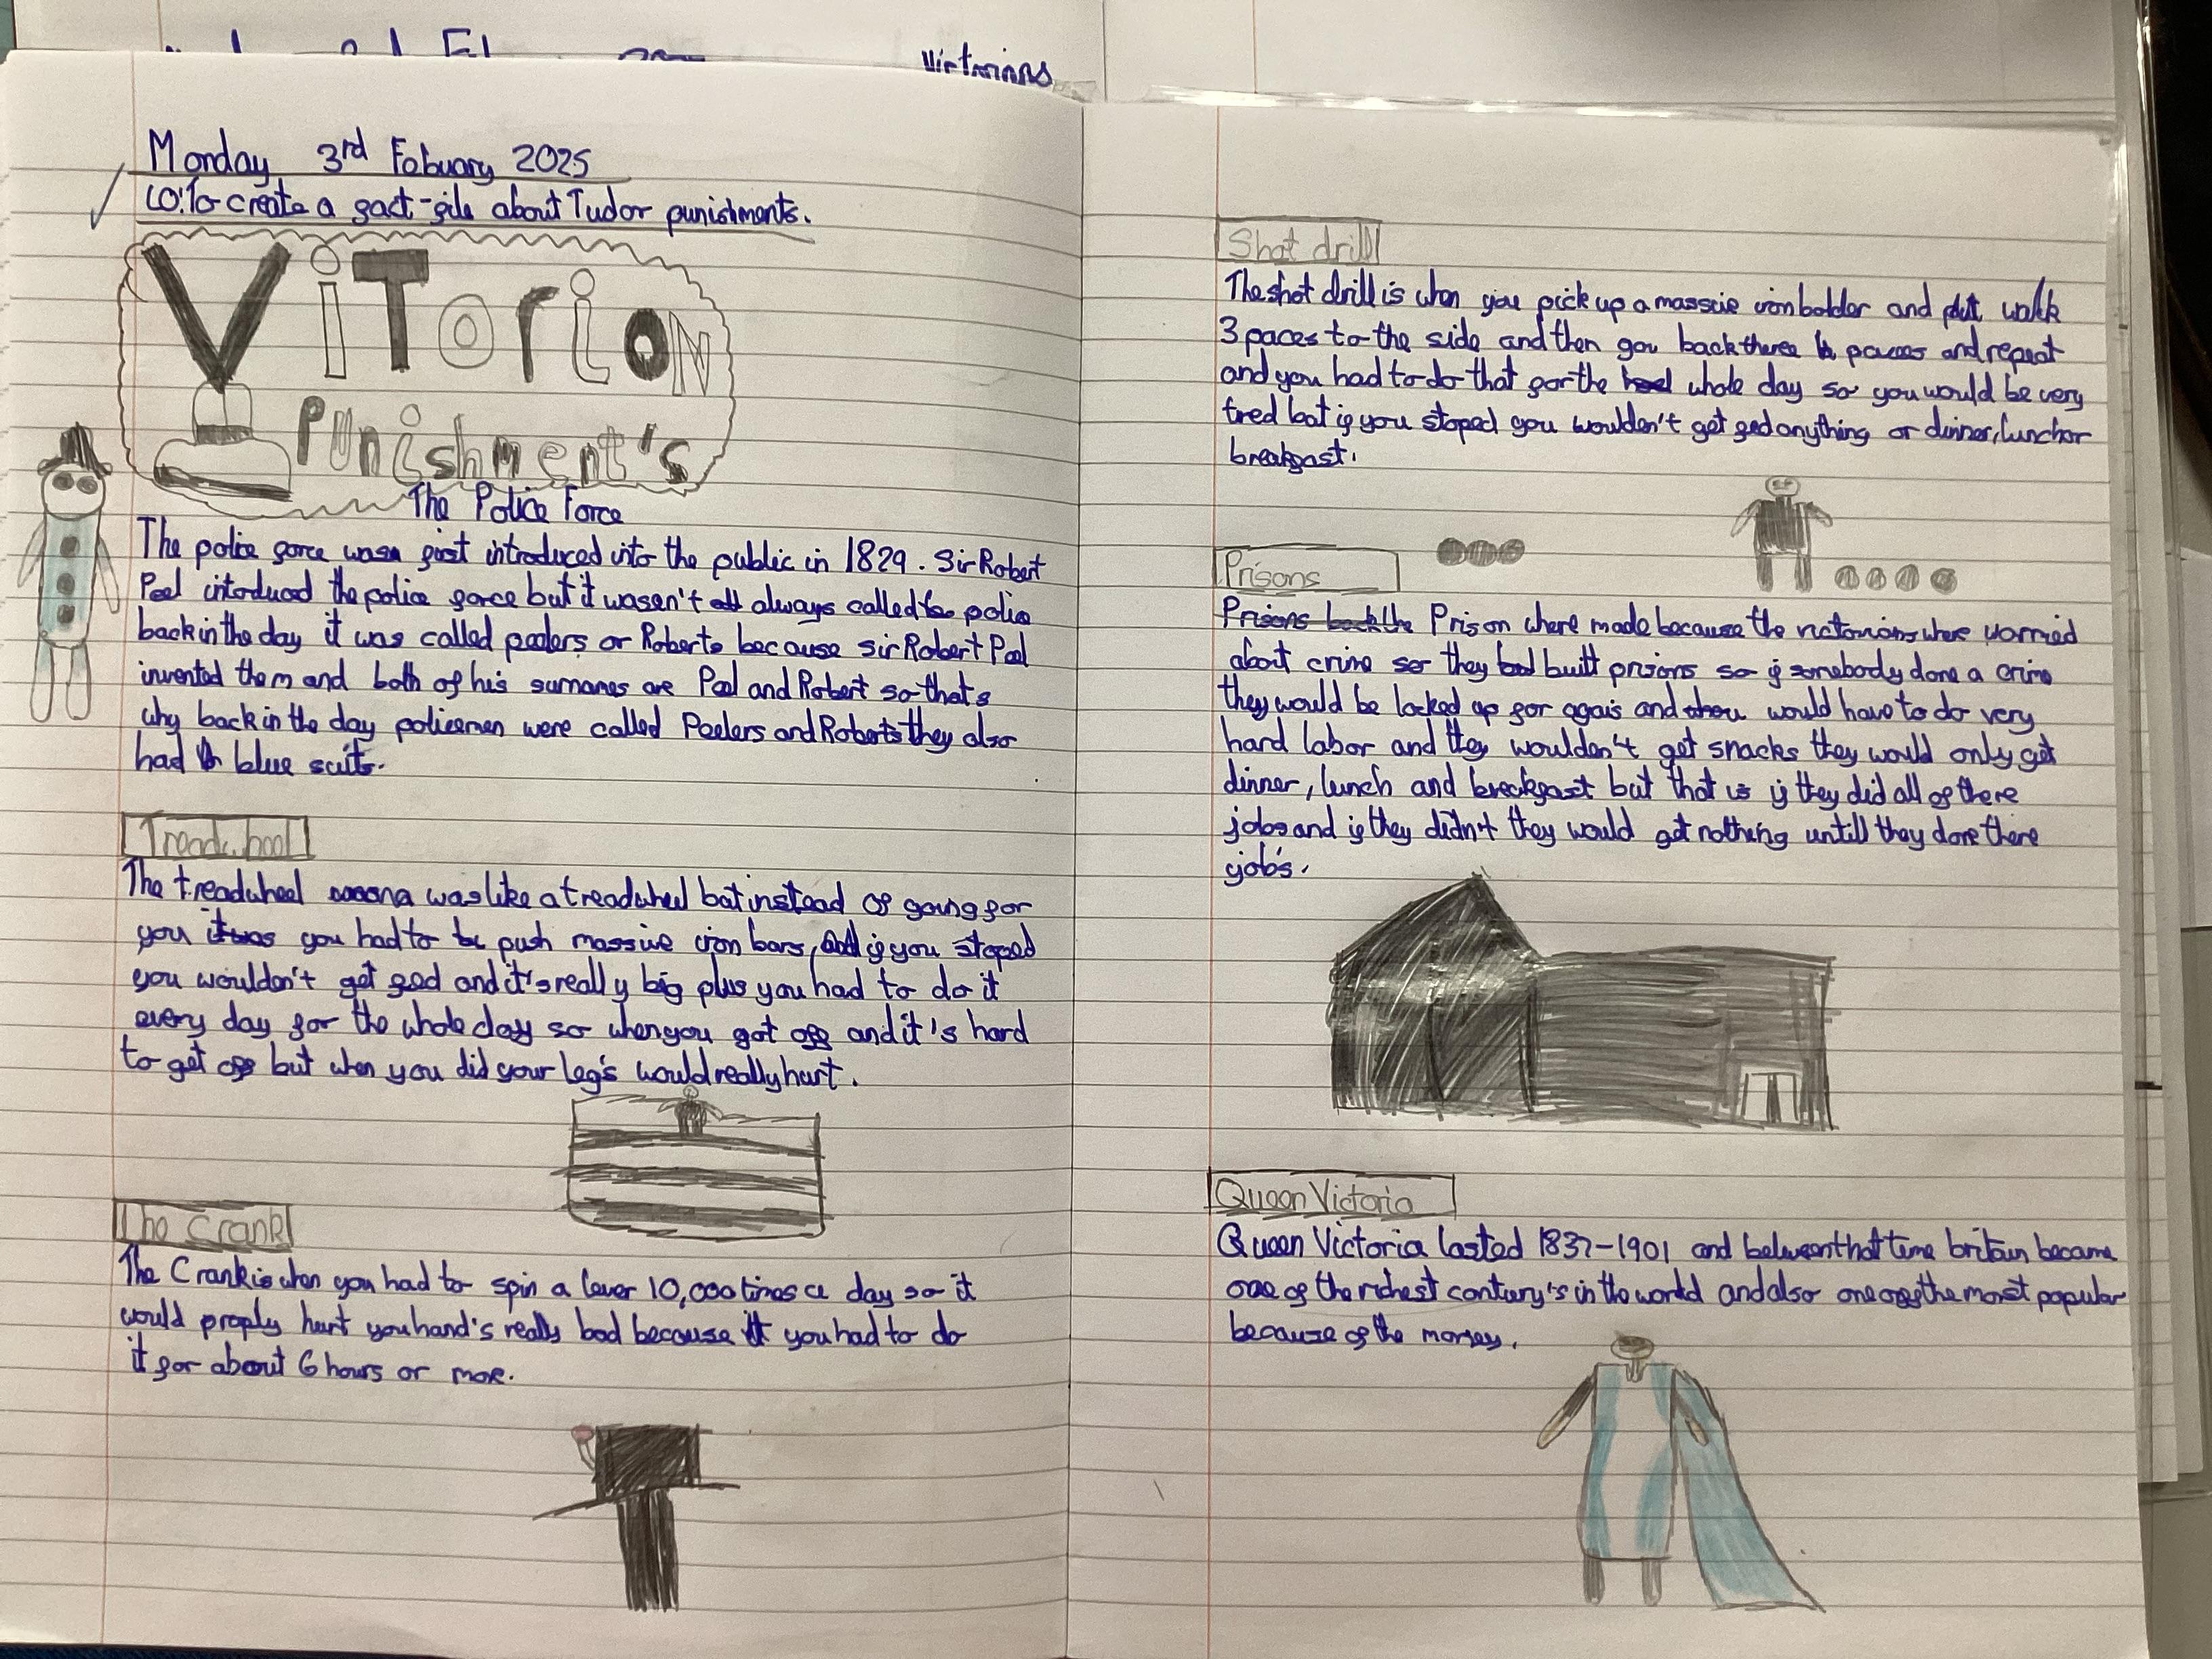 Victorians
Monday 3rd Febuary 2025
LO:To create a fact-file about Tudor punishments.
ViTorion
Punishment's
The Police Force
The police force was first introduced into the public in 1829. Sir Robert
Peel intoduced the police force but it wasen't always called police
back in the day it was called peelers or Roberts because sir Robert Peel
invented them and both of his surnanes are Peel and Robert so that's
why back in the day policemen were called Peelers and Roberts they also
had blue suits.
Treadwheel
The treadwheel was like a treadwheel but instead of going for
you you had to push massive iron bars, and if you stoped
you wouldn't get fed and it's really big plus you had to do it
every day for the whole day so when you got off and it's hard
to get off but when you did your leg's would really hurt.
The Crank
The Crank is when you had to spin a lever 10,000 times a day so it
would proply hurt you hand's really bad because you had to do
it for about 6 hours or more.
Shot drill
The shot drill is when you pick up a massive iron bolder and walk
3 paces to the side and then you back three paces and repeat
and you had to do that for the whole day so you would be very
tired but if you stoped you wouldn't get fed anything or dinner, lunch or
breakfast.
Prisons
Prisons back the Prison where made because the victorians where worried
about crime so they built prisons so if somebody done a crime
they would be locked up for agais and would have to do very
hard labor and they wouldn't get snacks they would only get
dinner, lunch and breakfast but that is if they did all of there
jobs and if they didn't they would get nothing untill they done there
job's.
Queen Victoria
Queen Victoria lasted 1837-1901 and between that time britain became
one of the richest contury's in the world and also one of the most popular
because of the money.